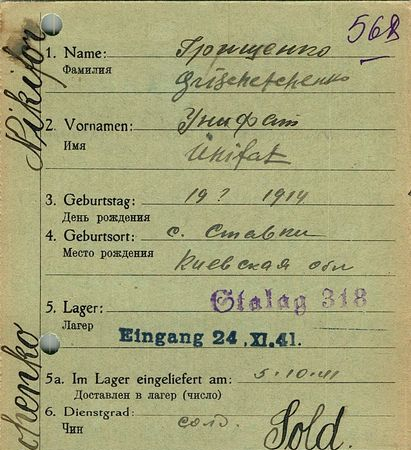 568
1. Name: Грищенко
Фамилия
Grischetchenko
2. Vornamen: Унифат
Имя
Unifat
3. Geburtstag: 19? 1914
День рождения
4. Geburtsort: с. Ставки
Место рождения
Киевская обл
5. Lager: Stalag 318
Лагер
Eingang 24.XI.41.
5a. Im Lager eingeliefert am: 5.10.41
Доставлен в лагер (число)
6. Dienstgrad: солд.
Чин
Sold.
Nikifor
chenko